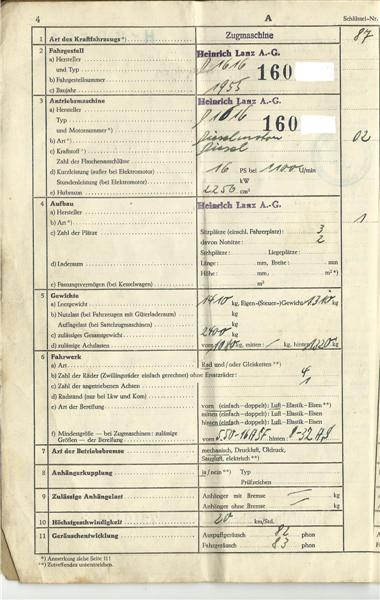 4 A Schlüssel-Nr.
1 Art des Kraftfahrzeugs*) Zugmaschine 87
2 Fahrgestell
a) Hersteller Heinrich Lanz A.-G.
und Typ D 1616
b) Fahrgestellnummer 160
c) Baujahr 1955
3 Antriebsmaschine
a) Hersteller Heinrich Lanz A.-G.
Typ D 1616
und Motornummer*) 160
b) Art*) Dieselmotor 02
c) Kraftstoff*) Diesel
Zahl der Flaschenanschlüsse
d) Kurzleistung (außer bei Elektromotor) 16 PS bei 1100 U/min
Stundenleistung (bei Elektromotor) kW
e) Hubraum 2256 cm³
4 Aufbau
a) Hersteller Heinrich Lanz A.-G.
b) Art*) 1
c) Zahl der Plätze Sitzplätze (einschl. Führerplatz): 3
davon Notsitze: 2
Stehplätze: Liegeplätze:
d) Laderaum Länge: mm, Breite: mm
Höhe: mm, m²*)
e) Fassungsvermögen (bei Kesselwagen) m³
5 Gewichte
a) Leergewicht 1410 kg, Eigen-(Steuer-)Gewicht 1310 kg
b) Nutzlast (bei Fahrzeugen mit Güterladeraum) kg
Aufliegelast (bei Sattelzugmaschinen) kg
c) zulässiges Gesamtgewicht 2400 kg
d) zulässige Achslasten vorn kg, mitten: / kg, hinten: kg
6 Fahrwerk
a) Art Rad und/oder Gleisketten **)
b) Zahl der Räder (Zwillingsräder einfach gerechnet) ohne Ersatzräder: 4
c) Zahl der angetriebenen Achsen 1
d) Radstand (nur bei Lkw und Kom)
e) Art der Bereifung vorn (einfach-doppelt): Luft-Elastik-Eisen **)
mitten (einfach-doppelt): Luft-Elastik-Eisen **)
hinten (einfach-doppelt): Luft-Elastik-Eisen **)
f) Mindestgröße — bei Zugmaschinen: zulässige
Größen — der Bereifung vorn 5.50-16 hinten 8-32 AS
7 Art der Betriebsbremse mechanisch, Druckluft, Öldruck,
Saugluft, elektrisch **)
8 Anhängerkupplung ja/nein **) Typ
Prüfzeichen
9 Zulässige Anhängelast Anhänger mit Bremse — kg
Anhänger ohne Bremse — kg
10 Höchstgeschwindigkeit 20 km/Std.
11 Geräuschentwicklung Auspuffgeräusch 82 phon
Fahrgeräusch 83 phon
*) Anmerkung siehe Seite III!
**) Zutreffendes unterstreichen.